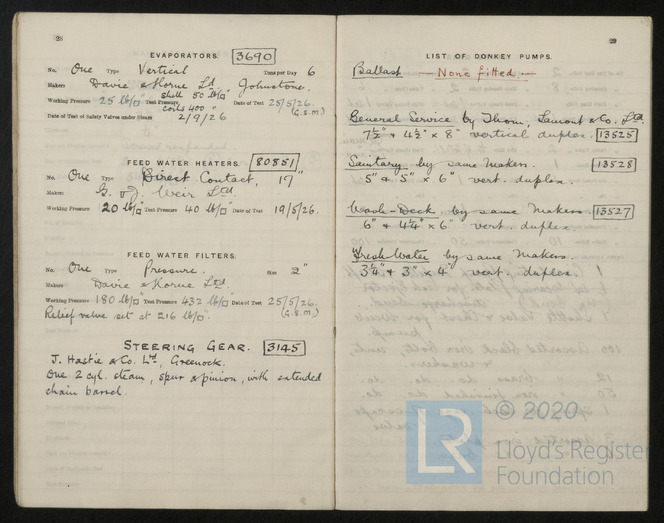 28
EVAPORATORS. 3690
No. One Type Vertical Tons per Day 6
Makers Davie & Horne Ld. Johnstone.
shell 50 lb/□"
Working Pressure 25 lb/□" Test Pressure coils 400 " Date of Test 25/5/26.
(G.S.M.)
Date of Test of Safety Valves under Steam 2/9/26
FEED WATER HEATERS. 80851
No. One Type Direct Contact, 17"
Makers G. & J. Weir Ltd
Working Pressure 20 lb/□" Test Pressure 40 lb/□" Date of Test 19/5/26.
FEED WATER FILTERS.
No. One Type Pressure. Size 2"
Makers Davie & Horne Ltd.
Working Pressure 180 lb/□" Test Pressure 432 lb/□" Date of Test 25/5/26.
Relief valve set at 216 lb/□". (G.S.M.)
STEERING GEAR. 3145
J. Hastie & Co. Ltd, Greenock.
One 2 cyl. steam, spur & pinion, with extended
chain barrel.
29
LIST OF DONKEY PUMPS.
Ballast — None fitted. —
General Service by Thom, Lamont & Co. Ltd.
7½" & 4½" x 8" vertical duplex. 13525
Sanitary by same makers. 13528
5" & 5" x 6" vert. duplex.
Wash-Deck by same makers. 13527
6" & 4¼" x 6" vert. duplex.
Fresh-Water by same makers.
3¼" & 3" x 4" vert. duplex.
© 2020
LR Lloyd's Register
Foundation